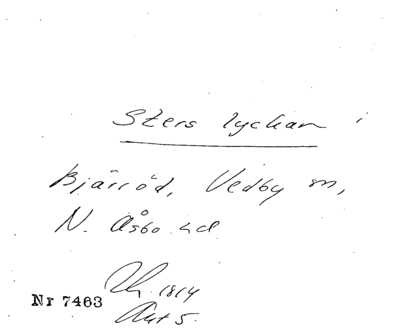 Sters lyckan i
Bjärröd, Vedby sn,
N. Åsbo hd
1814
Akt 5.
Nr 7463